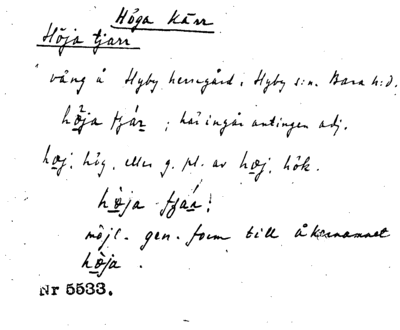 Höga Kärr
Höja tjarr
vång å Hyby herregård, Hyby s:n. Bara h:d.
höja tjár ; här ingår antingen adj.
hœj, hög, eller g. pl. av hœj, hök.
hö̀ja tjáŕ;
möjl. gen. form till åkernamnet
hö̀ja.
Nr 5533.